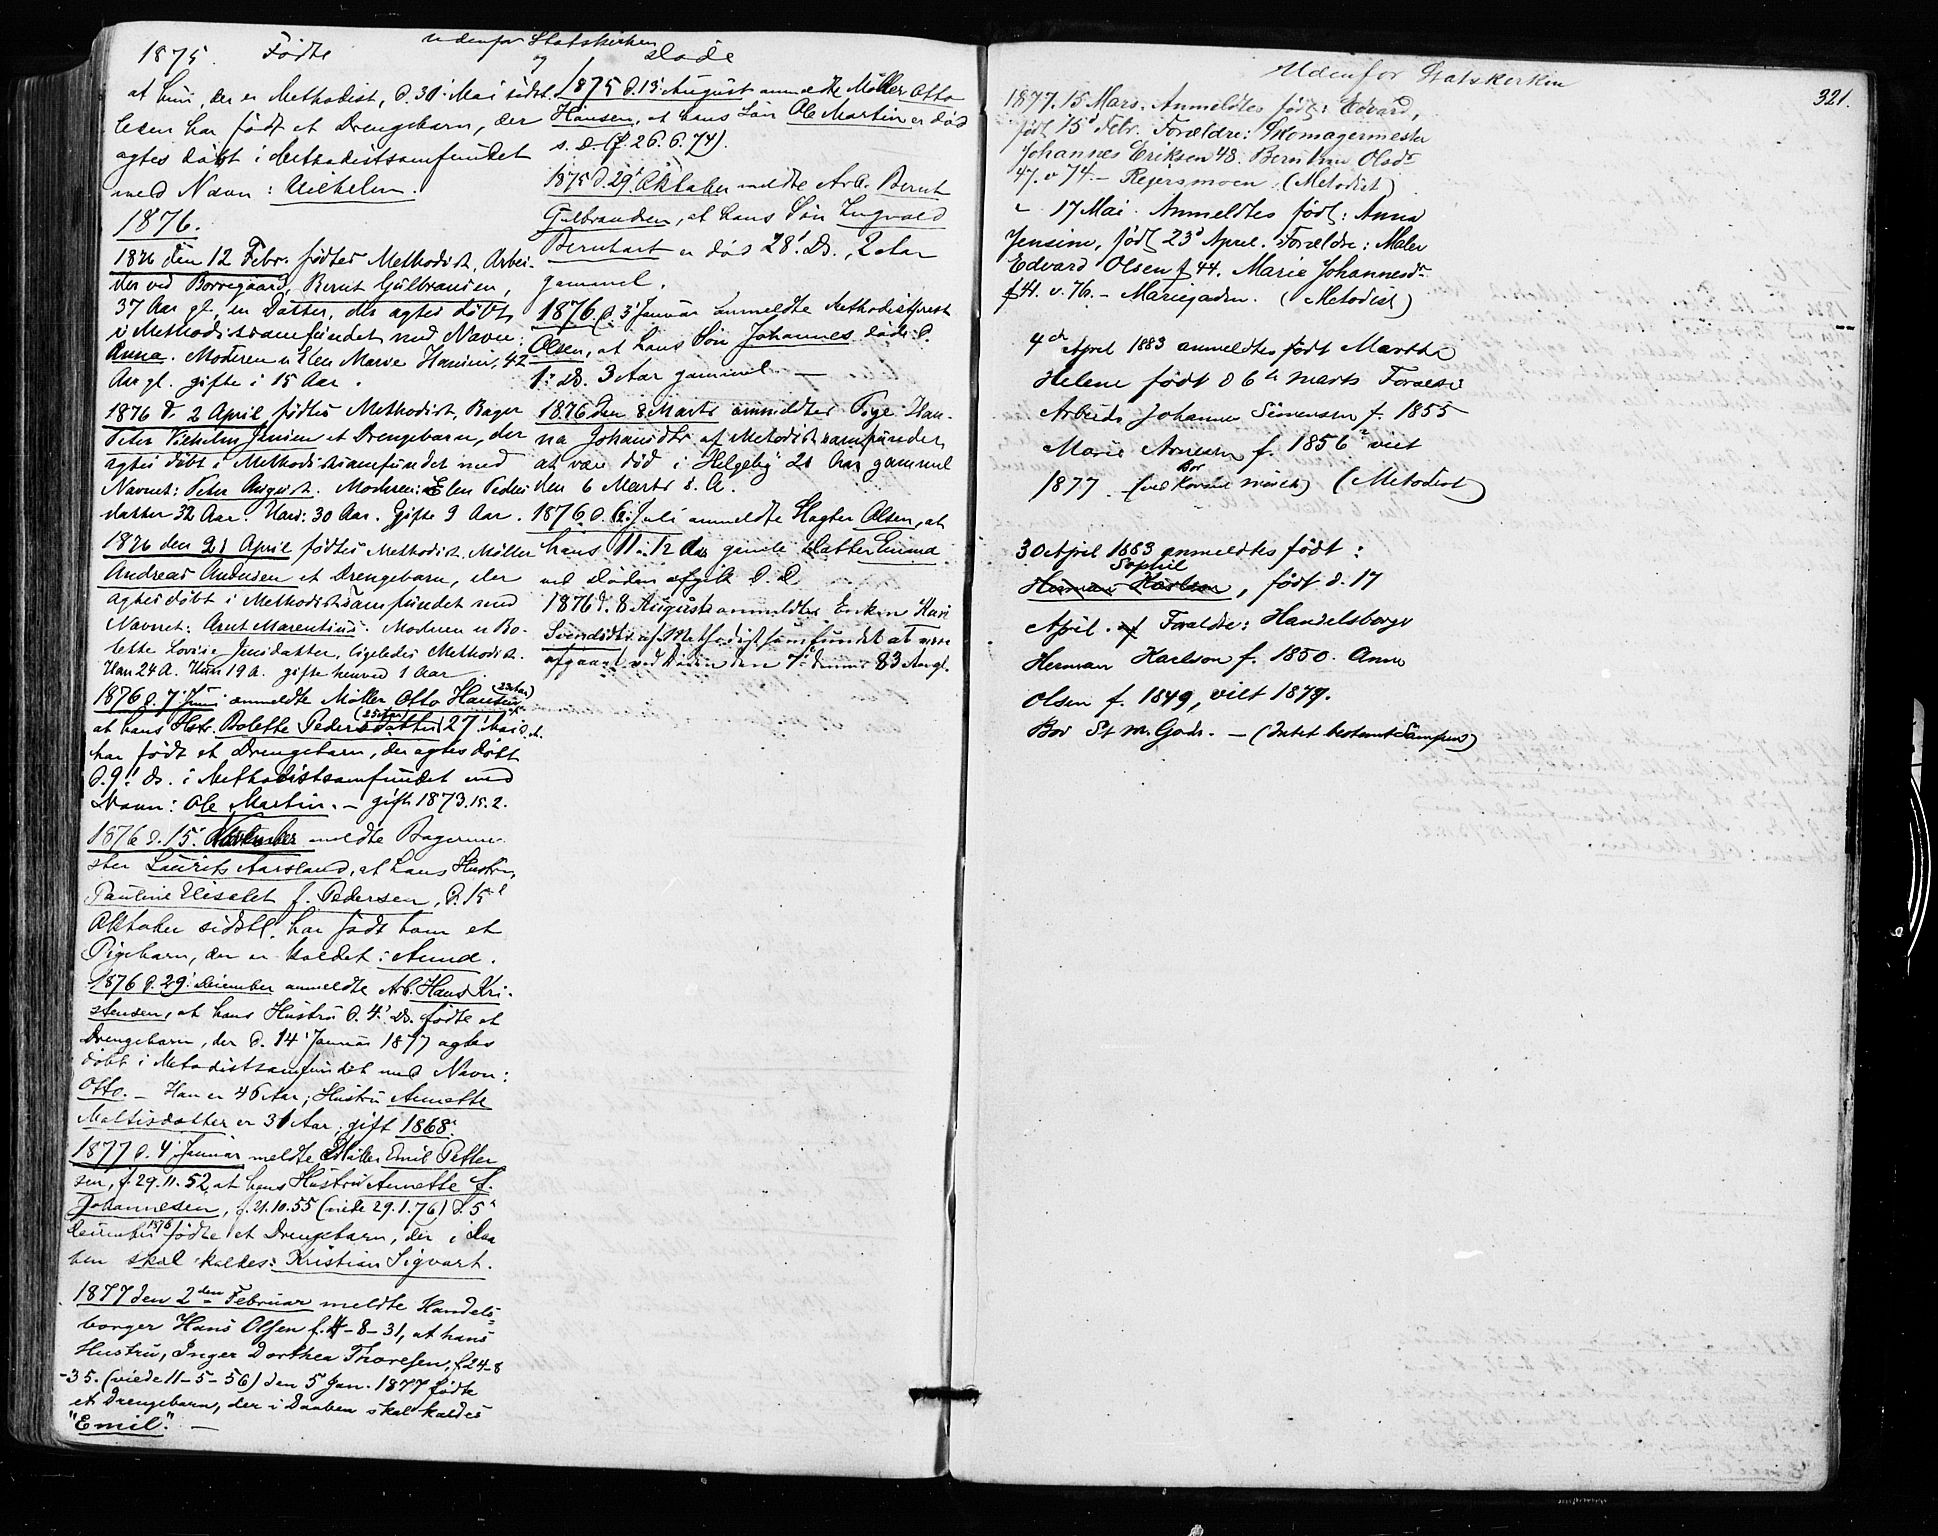 1875. Fødte udenfor Statskirken og Døde
at hun, der er Methodist, d. 31 Mai sidst-
leden har født et Drengebarn, der
agtes døbt i Methodistsamfundet
med Navn: Vilhelm.
1876.
1876 den 12 Febr. fødtes Methodist, Arbei-
der ved Borregaard, Bernt Gulbransen,
37 Aar gl., en Datter, der agtes døbt
i Methodistsamfundet med Navn:
Anna. Moderen er Elen Marie Hansen, 42
Aar gl. gifte i 15 Aar.
1876 d. 2 April fødtes Methodist, Bager
Peter Vilhelm Jensen et Drengebarn, der
agtes døbt i Methodistsamfundet med
Navnet: Peter August. Moderen: Elen Peders
datter 32 Aar. Han: 30 Aar. Gifte 9 Aar.
1876 den 21 April fødtes Methodist, Møller
Andreas Andersen et Drengebarn, der
agtes døbt i Methodistsamfundet med
Navnet: Arnt Marentius. Moderen er Bo-
lette Lovise Jensdatter, ligeledes Methodist.
Han 24 A. Hun 19 A. gifte henved 1 Aar.
1876 d. 7' Juni anmeldte Møller Otto Hansen (23 Aar)
at hans Hstr. Bolette Pedersdatter (25 Aar) 27' Mai s.A.
har født et Drengebarn, der agtes døbt
d. 9' ds. i Methodistsamfundet med
Navn: Ole Martin. – gift 1873.15.2.
1876 d. 15' November meldte Bagerme-
ster Laurits Aarsland, at hans Hustru,
Pauline Elisabet f. Pedersen, d. 15d
Oktober sidstl. har født ham et
Pigebarn, der er kaldet: Aund.
1876 d. 29' December anmeldte Arb. Hans Kri-
stensen, at hans Hustru d. 4' Ds. fødte et
Drengebarn, der d. 14' Januar 1877 agtes
døbt i Metodistsamfundet med Navn:
Otto. – Han er 46 Aar; Hustru Annette
Mattisdatter er 31 Aar; gift 1868.
1877 d. 4' Januar meldte Møller Emil Petter
sen, f. 29.11.52, at hans Hustru Annette f.
Johannesen, f. 21.10.55 (viede 29.1.76) d. 5'
December 1876 fødte et Drengebarn, der i Daa
ben skal kaldes: Kristian Sigvart.
1877 den 2den Februar meldte Handels-
borger Hans Olsen f. 4-8-31, at hans
Hustru, Inger Dorthea Thoresen, f. 24-8
-35. (viede 11-5-56) den 5 Jan. 1877 fødte
et Drengebarn, der i Daaben skal kaldes
"Emil". –
1875 d. 13' August anmeldte Møller Otto
Hansen, at hans Søn Ole Martin er død
s.D. (f. 26.6.74).
1875 d. 29' Oktober meldte Arb. Bernt
Gulbransen, at hans Søn Ingvald
Bernhart er død 28' Ds., 2 Aar
gammel.
1876 d. 3' Januar anmeldte Methodistprest
Olsen, at hans Søn Johannes døde d.
1' Ds. 3 Aar gammel. –
1876 den 8 Marts anmeldtes Pige Han-
na Johansdtr. af Metodistsamfundet
at være død i Helgeby 21 Aar gammel
den 6 Marts s. A.
1876 d. 6' Juli anmeldte Slagter Olsen, at
hans 11 à 12 Aar gamle Datter Emma
ved Døden afgik d. D.
1876 d. 8 August anmeldtes Enken Kari
Svendsdtr. af Methodistsamfundet at være
afgaaet ved Døden den 7de dennes 83 Aar gl.
Udenfor Statskirken
321.
1877. 15 Mars. Anmeldtes født: Edvard,
født 15' Febr. Forældre: Skomagermester
Johannes Eriksen 48. Bernthine Olsdr
47. v 74 – Rejersmoen (Metodist)
" 17 Mai. Anmeldtes født: Anna
Jensine, født 23' April. Forældre: Maler
Edvard Olsen f 44. Marie Johannesdr
f 41. v. 76. – Mariegaden. (Metodist)
4de April 1883 anmeldtes født Marthe
Helene født d 6te Marts Forældre
Arbeider Johannes Simensen f. 1855
Marie Arnesen f. 1856 viet
1877. (Bor ved) (Metodist)
30 April 1883 anmeldtes født:
Sophie
Herman Karlson, født d. 17
April. af Forældre: Handelsborger
Herman Karlson f. 1850. Anne
Olsen f. 1849, viet 1877.
Bor St. M. Gade. – (Intet bestemt Samfund)